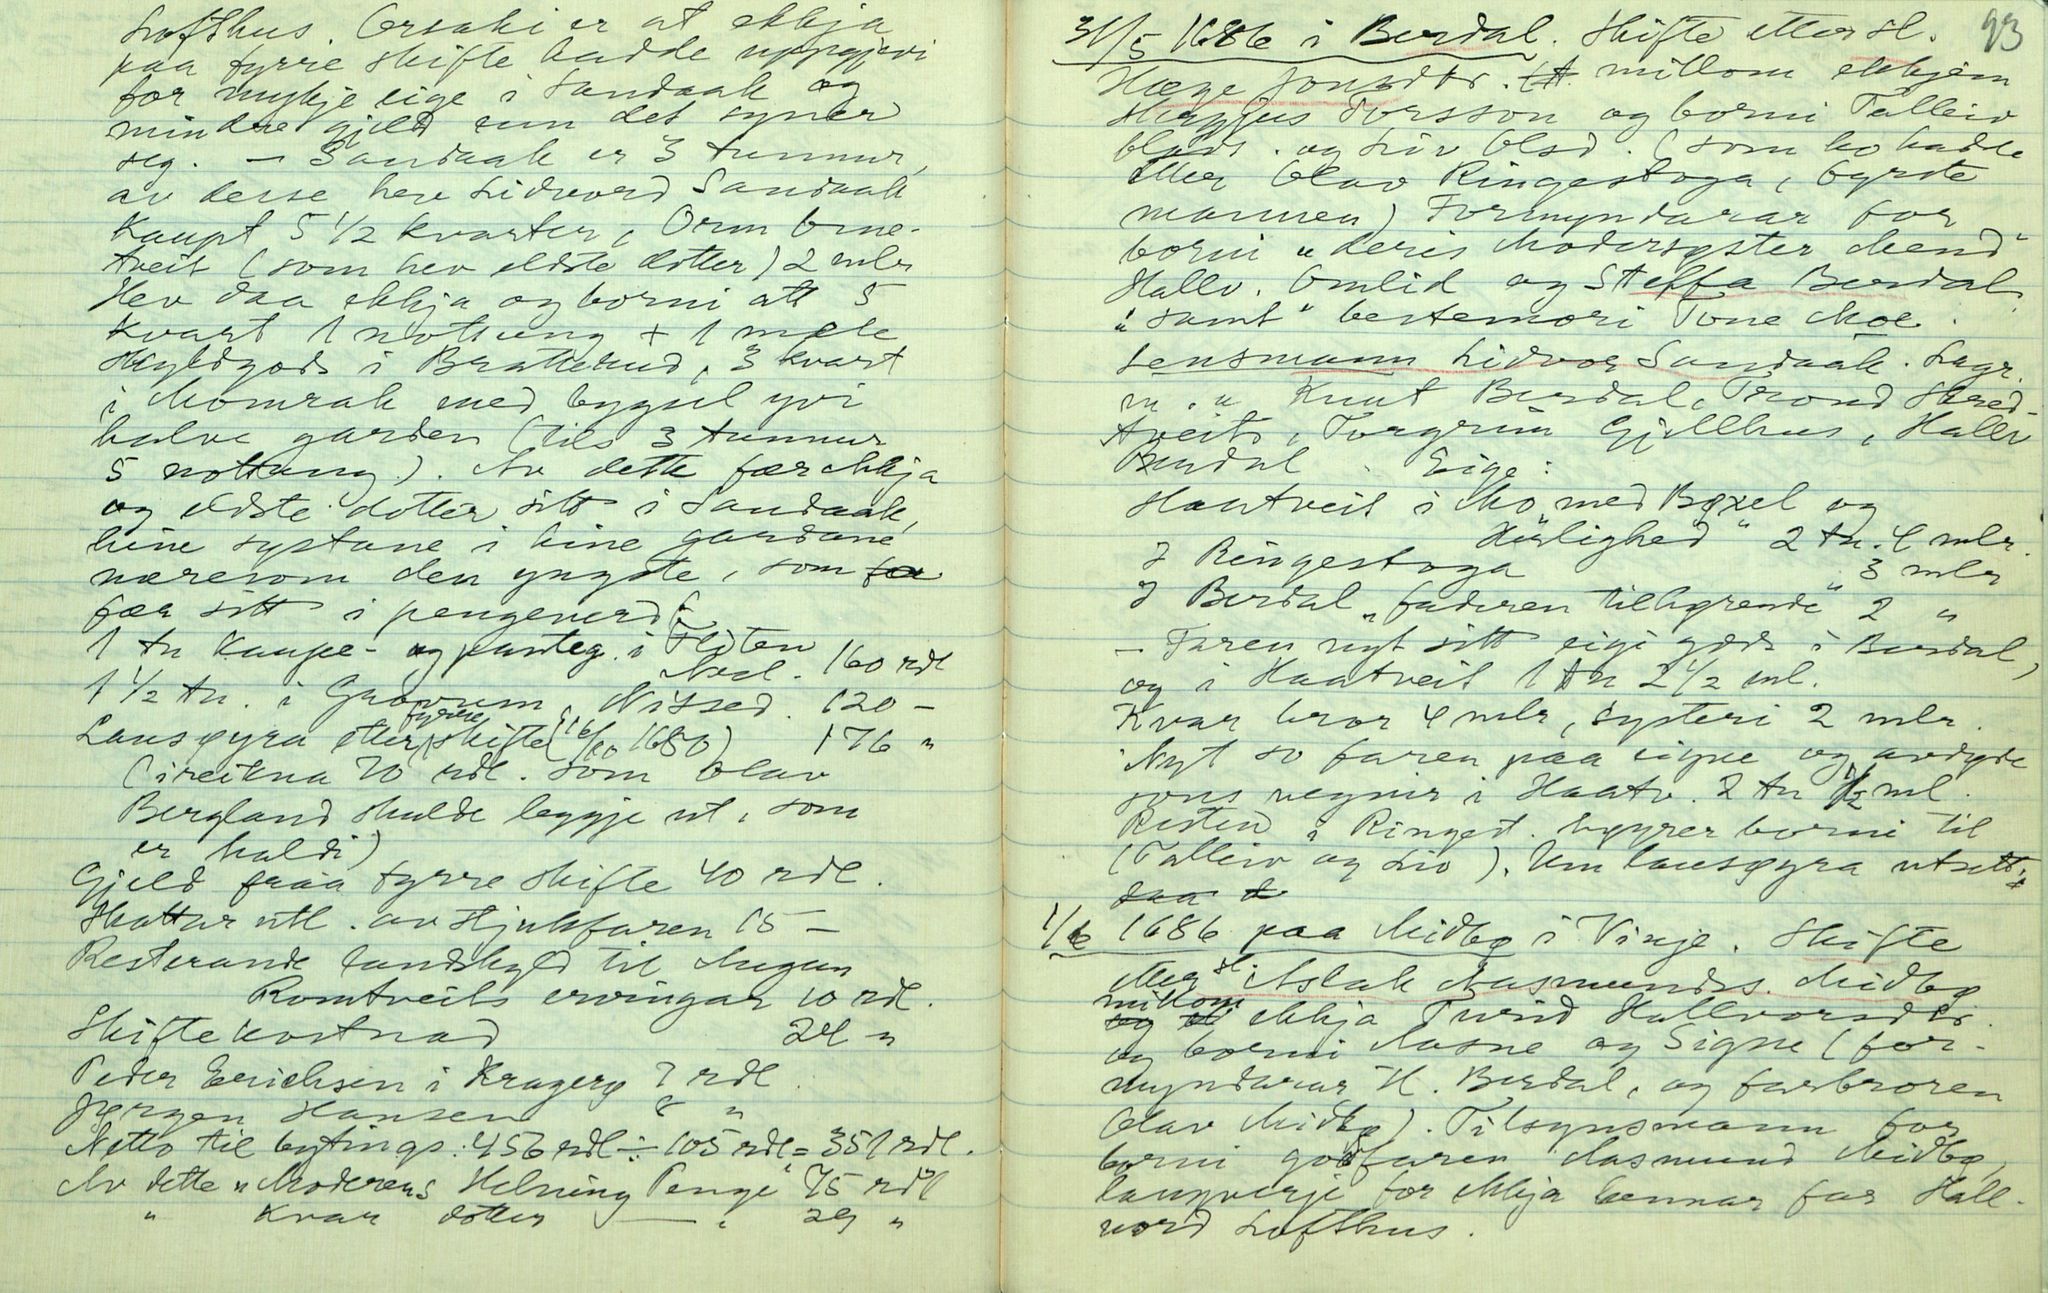 Lofthus. Orsaki er at ekkja
paa fyrre skifte hadde uppgjevi
for mykje eige i Sandaak og
mindre gjeld enn det syner
seg. — Sandaak er 3 tunnur,
av desse hev Lidvord Sandaak
kaupt 5 1/2 kvarter, Orm
tveit (som hev eldste dotter) 2 mlr
Hev daa ekkja og borni att 5
kvart 1 nottung + 1 mæle
Skyldgods i Brattelund, 3 kvart
i Momrak med bygsel yvi
halve garden (tils 3 tunnur
5 nottung). Av dette fær ekkja
og eldste dotter sitt i Sandaak,
hine systane i hine gardane
næresom den yngste, som
fær sitt i pengeverd:
1 tn kaupe- og panteg. i Floten
Nesl. 160 rdl
1 1/2 tn. i Gravum, Nissed. 120 —
Lausøyra etter fyrre skifte (16/10 1680) 176 "
(ireikna 70 rdl. som Olav
Bergland skulde leggje ut, som
er haldi)
Gjeld fraa fyrre skifte 40 rdl.
Skattar utl. av stjukfaren 15 —
Resterande landskyld til Augun
Romtveits ervingar 10 rdl.
Skiftekostnad 24 "
Peder Erichsen i Kragerø 7 rdl.
Jørgen Hansen 8 "
Netto til bytings: 456 rdl ÷ 105 rdl = 351 rdl.
Av dette "Moderens Helning Penge" 75 rdl
" kvar dotter — " 29 "
93
31/5 1686 i Berdal. Skifte etter sl.
Hæge Jonsdtr. millom ekkjem
Skeggjus Torsson og borni Talleiv
Olavs. og Liv Olsd. (som ho hadde
etter Olav Ringestoga, fyrste
mannen) Formyndarar for
borni "deris Modersyster Mend"
Hallv. Omlid og Steffa Berdal
"samt" bestemori Tone Moe.
Lensmann Lidvor Sandaak. Lagr.
m. " Knut Berdal, Trond Skred-
tveit, Torgrim Gjellhus, Hallv
Berdal. Eige:
Haatveit i Mo med Bøxel og
Härlighed" 2 tn. 4 mlr.
I Ringestoga 3 mlr
I Berdal "faderen tilhørende" 2 "
— Faren nyt sitt eige gods i Berdal,
og i Haatveit 1 tn 2 1/2 ml.
Kvar bror 4 mlr, systeri 2 mlr.
Nyt so faren paa eigne og avdøde
sons vegnir i Haatv. 2 tn 1/2 ml.
Resten i Ringest. høyrer borni til
(Talleiv og Liv). Um lausøyra utsett.
daa
1/6 1686 paa Midbø i Vinje. Skifte
etter sl. Aslak Aasmundss. Midbø
millom ekkja Turid Hallvorsdtr.
og borni Aasne og Signe (for-
myndarar H. Berdal, og farbroren
Olav Midbø). Tilsynsmann for
borni godfaren Aasmund Midbø,
laugverje for ekkja hennar far Hall-
vord Lofthus.